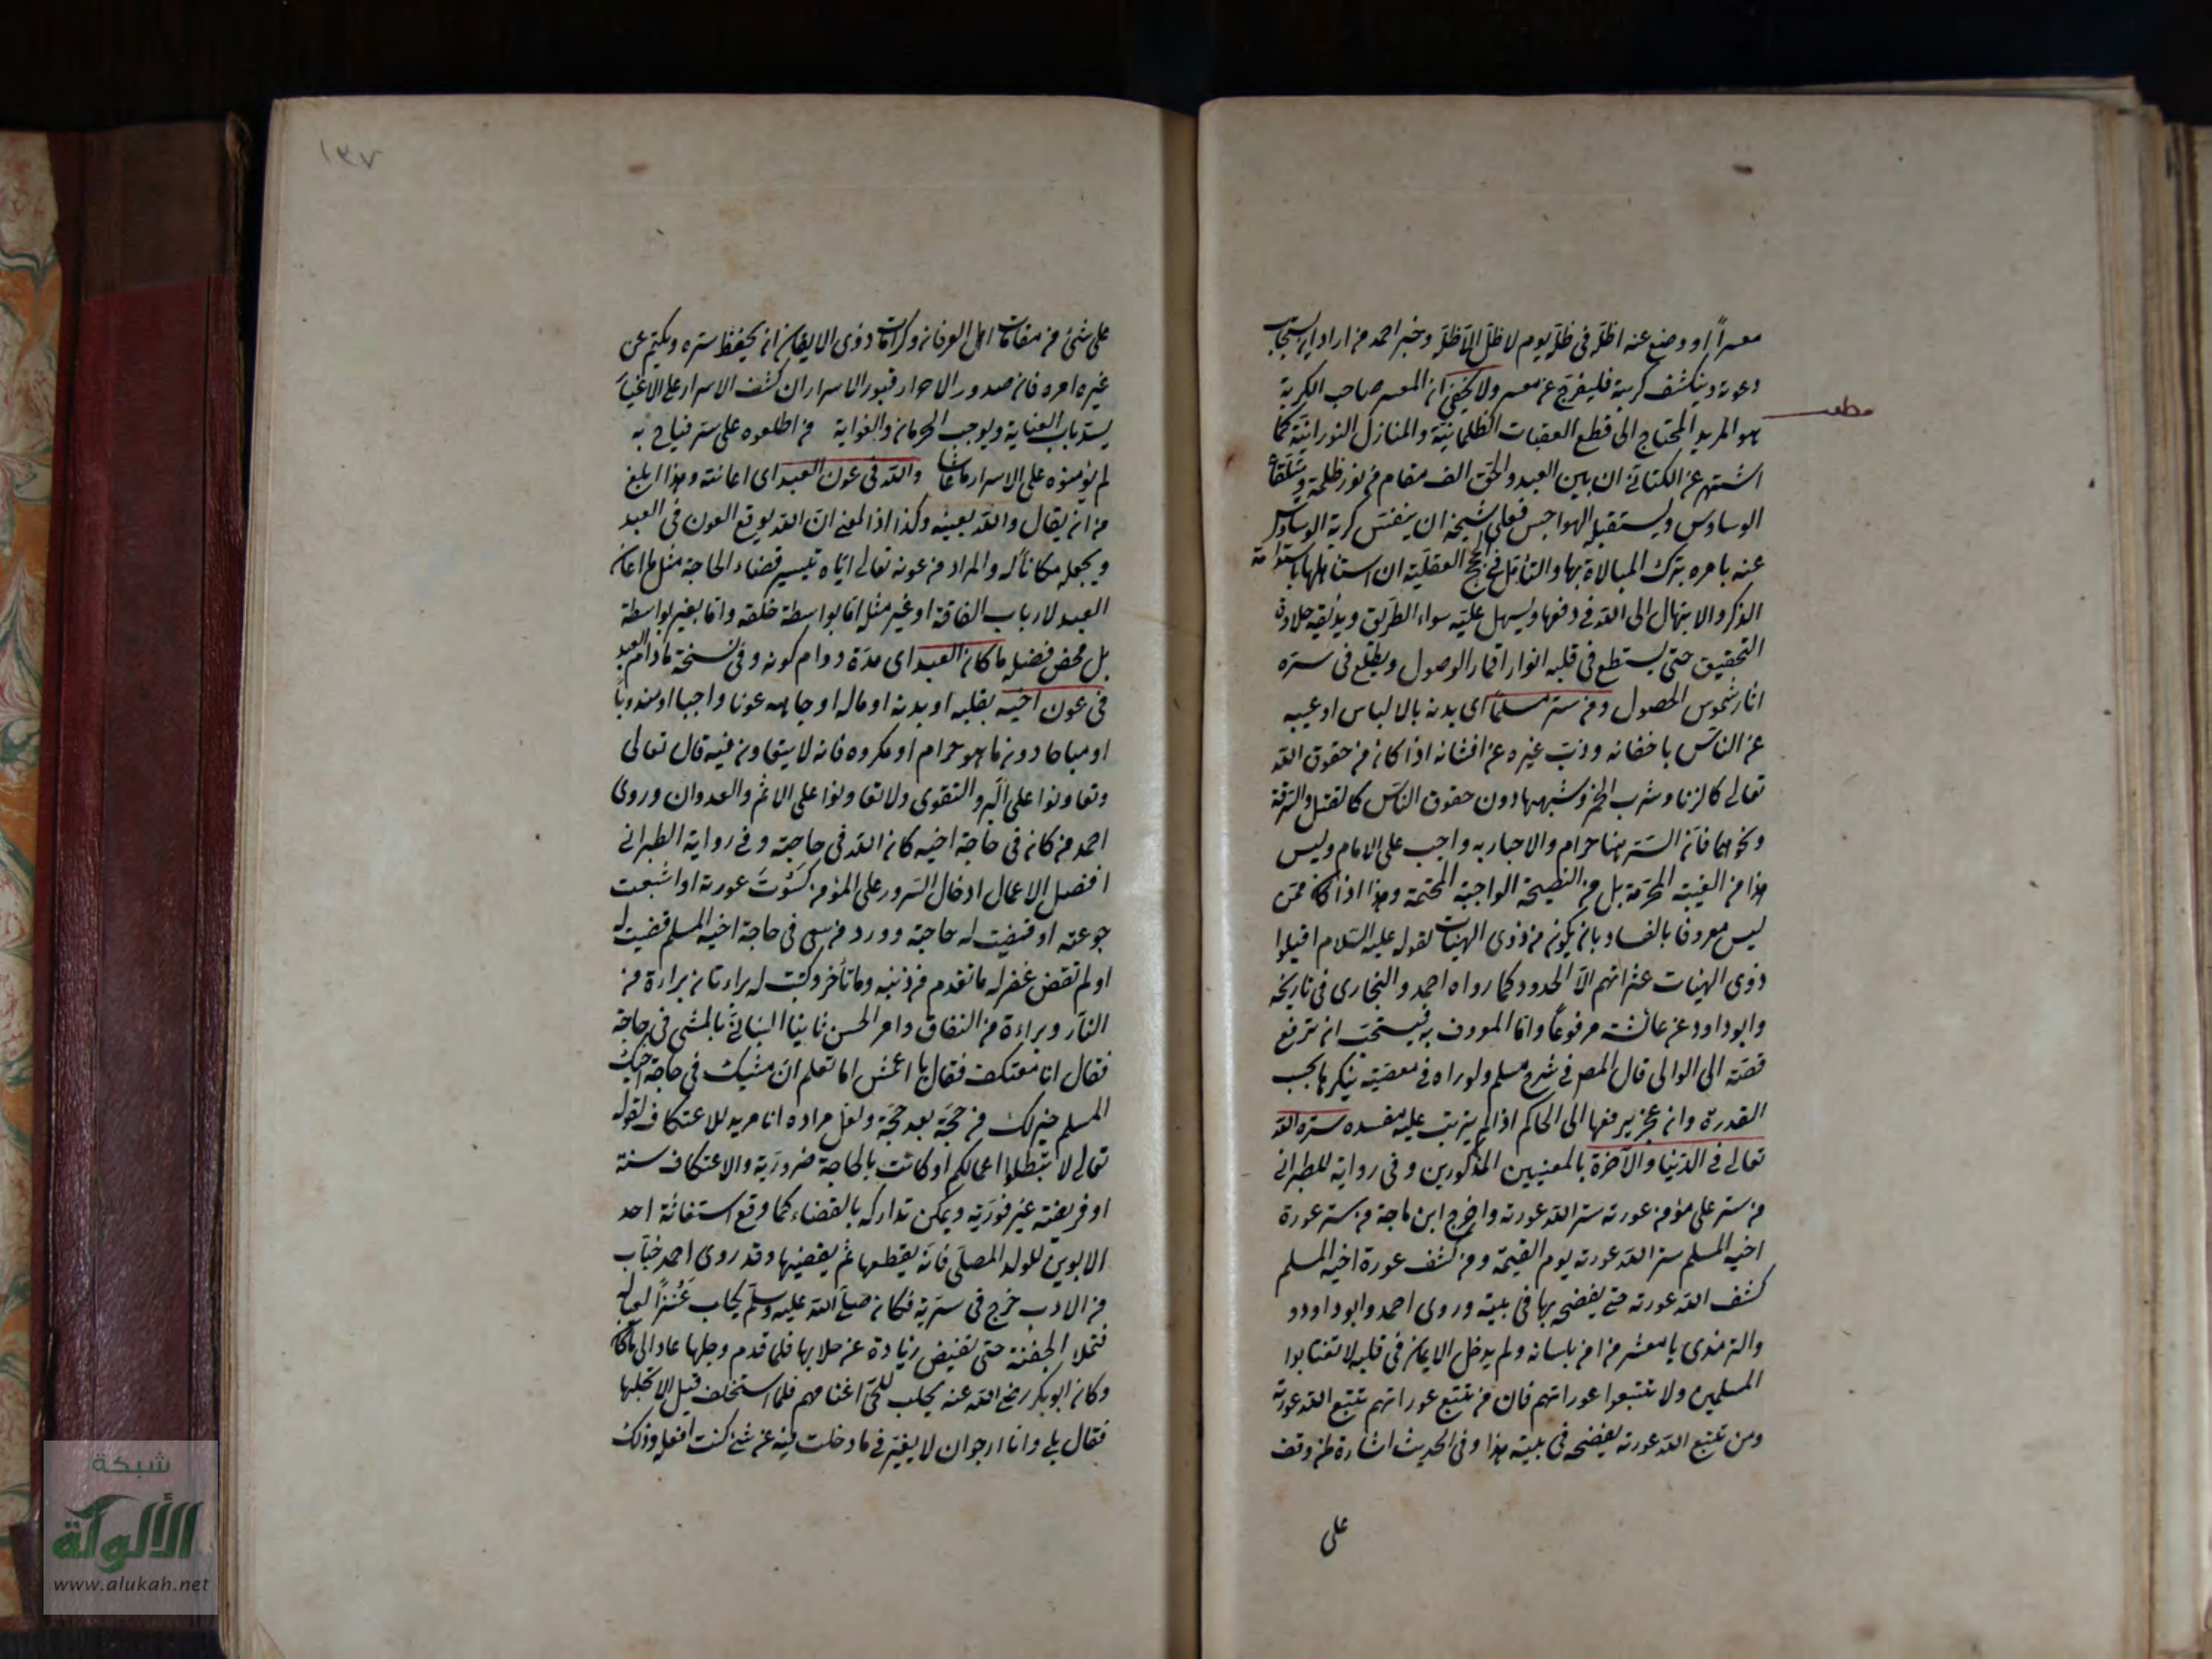 معسراً او وضع عنه اظله في ظله يوم لا ظل الا ظله وخبر احمد من اراد ان يستجاب
دعوته وينكشف كربته فليفرج عن معسر ولا يخفى ان المعسر صاحب الكربة
مطلب
هو المريد المحتاج الى قطع العقبات الظلمانية والمنازل النورانية كما
اشتهر عن الكتاني ان بين العبد والحق الف مقام من نور وظلمة
الوساوس ويستقبله الهواجس فعلى شيخه ان ينفس كربة الوساوس
عنه بامره بترك المبالاة بها والتأمل في الحجج العقلية ان استاهلها باستدامة
الذكر والابتهال الى الله في دفعها ويسهل عليه سواء الطريق ويذيقه حلاوة
التحقيق حتى يستطع في قلبه انوار اقمار الوصول ويطلع في سره
اثار شموس الحصول ومن ستر مسلما اى بدنه بالالباس او عيبه
عن الناس باخفائه وذب غيره عن افشائه اذا كان من حقوق الله
تعالى كالزنا وشرب الخمر وشبههما دون حقوق الناس كالقتل والسرقة
ونحوهما فان الستر هنا حرام والاخبار به واجب على الامام وليس
هذا من الغيبة المحرمة بل من النصيحة الواجبة المحتمة وهذا اذا كان ممن
ليس معروفا بالفساد بان يكون من ذوى الهيئات لقوله عليه السلام اقيلوا
ذوى الهيئات عثراتهم الا الحدود كما رواه احمد والبخارى في تاريخه
وابو داود عن عائشة مرفوعاً واما المعروف به فيستحب ان ترفع
قصته الى الوالى قال المص في شرح مسلم ولو راه في معصية ينكرها بحسب
القدرة وان عجز يرفعها الى الحاكم اذا لم يترتب عليه مفسده ستره الله
تعالى في الدنيا والآخرة بالمعنيين المذكورين وفي رواية للطبرانى
من ستر على مؤمن عورته ستر الله عورته واخرج ابن ماجة من ستر عورة
اخيه المسلم ستر الله عورته يوم القيمة ومن كشف عورة اخيه المسلم
كشف الله عورته حتى يفضحه بها في بيته وروى احمد وابو داود
والترمذى يا معشر من امن بلسانه ولم يدخل الايمان في قلبه لا تغتابوا
المسلمين ولا تتبعوا عوراتهم فان من تتبع عوراتهم تتبع الله عورته
ومن تتبع الله عورته يفضحه في بيته هذا وفي الحديث اشارة لمن وقف
على
١٣٧
على شئ من مقامات اهل العرفان وكرامات ذوى الايقان ان يحفظ ستره ويكتم عن
غيره امره فان صدور الاحرار قبور الاسرار ان كشف الاسرار على الاغيار
يسد باب العناية ويوجب الحرمان والغواية من اطلعوه على سر فباح به
لم يؤمنوه على الاسرار ما عاشا والله في عون العبد اى اعانته وهذا ابلغ
من ان يقال والله يعينه وكذا اذ المعنى ان الله يوقع العون في العبد
ويجعله مكانا له والمراد من عونه تعالى اياه تيسير قضاء الحاجة مثل ما اعان
العبد لارباب الفاقة او غير مثل اما بواسطة خلقه واما بغير بواسطة
بل محض فضله ما كان العبد اى مدة دوام كونه وفي نسخة ما دام العبد
في عون اخيه بقلبه او بدنه او ماله او جاهه عونا واجبا او مندوبا
او مباحا دون ما هو حرام او مكروه فانه لا يتعاون فيه قال تعالى
وتعاونوا على البر والتقوى ولا تعاونوا على الاثم والعدوان وروى
احمد من كان في حاجة اخيه كان الله في حاجته وفي رواية الطبرانى
افضل الاعمال ادخال السرور على المؤمن كسوت عورته او اشبعت
جوعته او قضيت له حاجته وورد من سعى في حاجة اخيه المسلم قضيت له
او لم تقض غفر له ما تقدم من ذنبه وما تأخر وكتبت له براءتان براءة من
النار وبراءة من النفاق وامر الحسن ثابتا البنانى بالمشى في حاجة
فقال انا معتكف فقال يا اعمش اما تعلم ان مشيك في حاجة اخيك
المسلم خير لك من حجة بعد حجة ولعل مراده انا مريد للاعتكاف لقوله
تعالى لا تبطلوا اعمالكم او كانت بالحاجة ضرورية والاعتكاف سنة
او فريضة غير فورية ويمكن تداركه بالقضاء كما وقع استغاثة احد
الابوين للولد المصلى فانه يقطعها ثم يقضيها وقد روى احمد خباب
من الارت خرج في سرية فكان صلى الله عليه وسلم يحلب عنزا لعياله
فتملا الجفنة حتى تفيض زيادة عن حلابها فلما قدم وحلبها عاد الى ما كان
وكان ابو بكر رضى الله عنه يحلب للحى اغنامهم فلما استخلف قيل الان لا يحلبها
فقال بلى وانا ارجو ان لا يغيرنى ما دخلت فيه عن شئ كنت افعله وذلك
شبكة
الألوكة
www.alukah.net